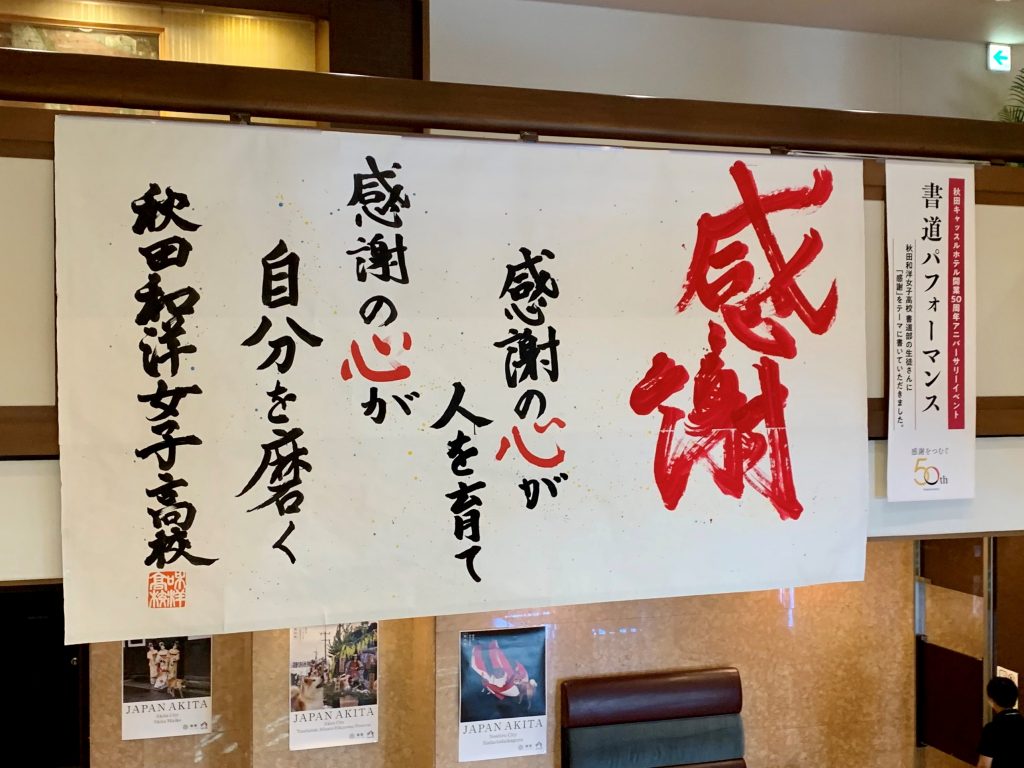 感謝
感謝の心が
人を育て
感謝の心が
自分を磨く
秋田和洋女子高校
秋田キャッスルホテル開業50周年アニバーサリーイベント
書道パフォーマンス
秋田和洋女子高校 書道部の生徒さんに
「感謝」をテーマに書いていただきました。
感謝をつむぐ
50th
JAPAN AKITA
Akita City
Akita Maiko
JAPAN AKITA
JAPAN AKITA
Noshiro City